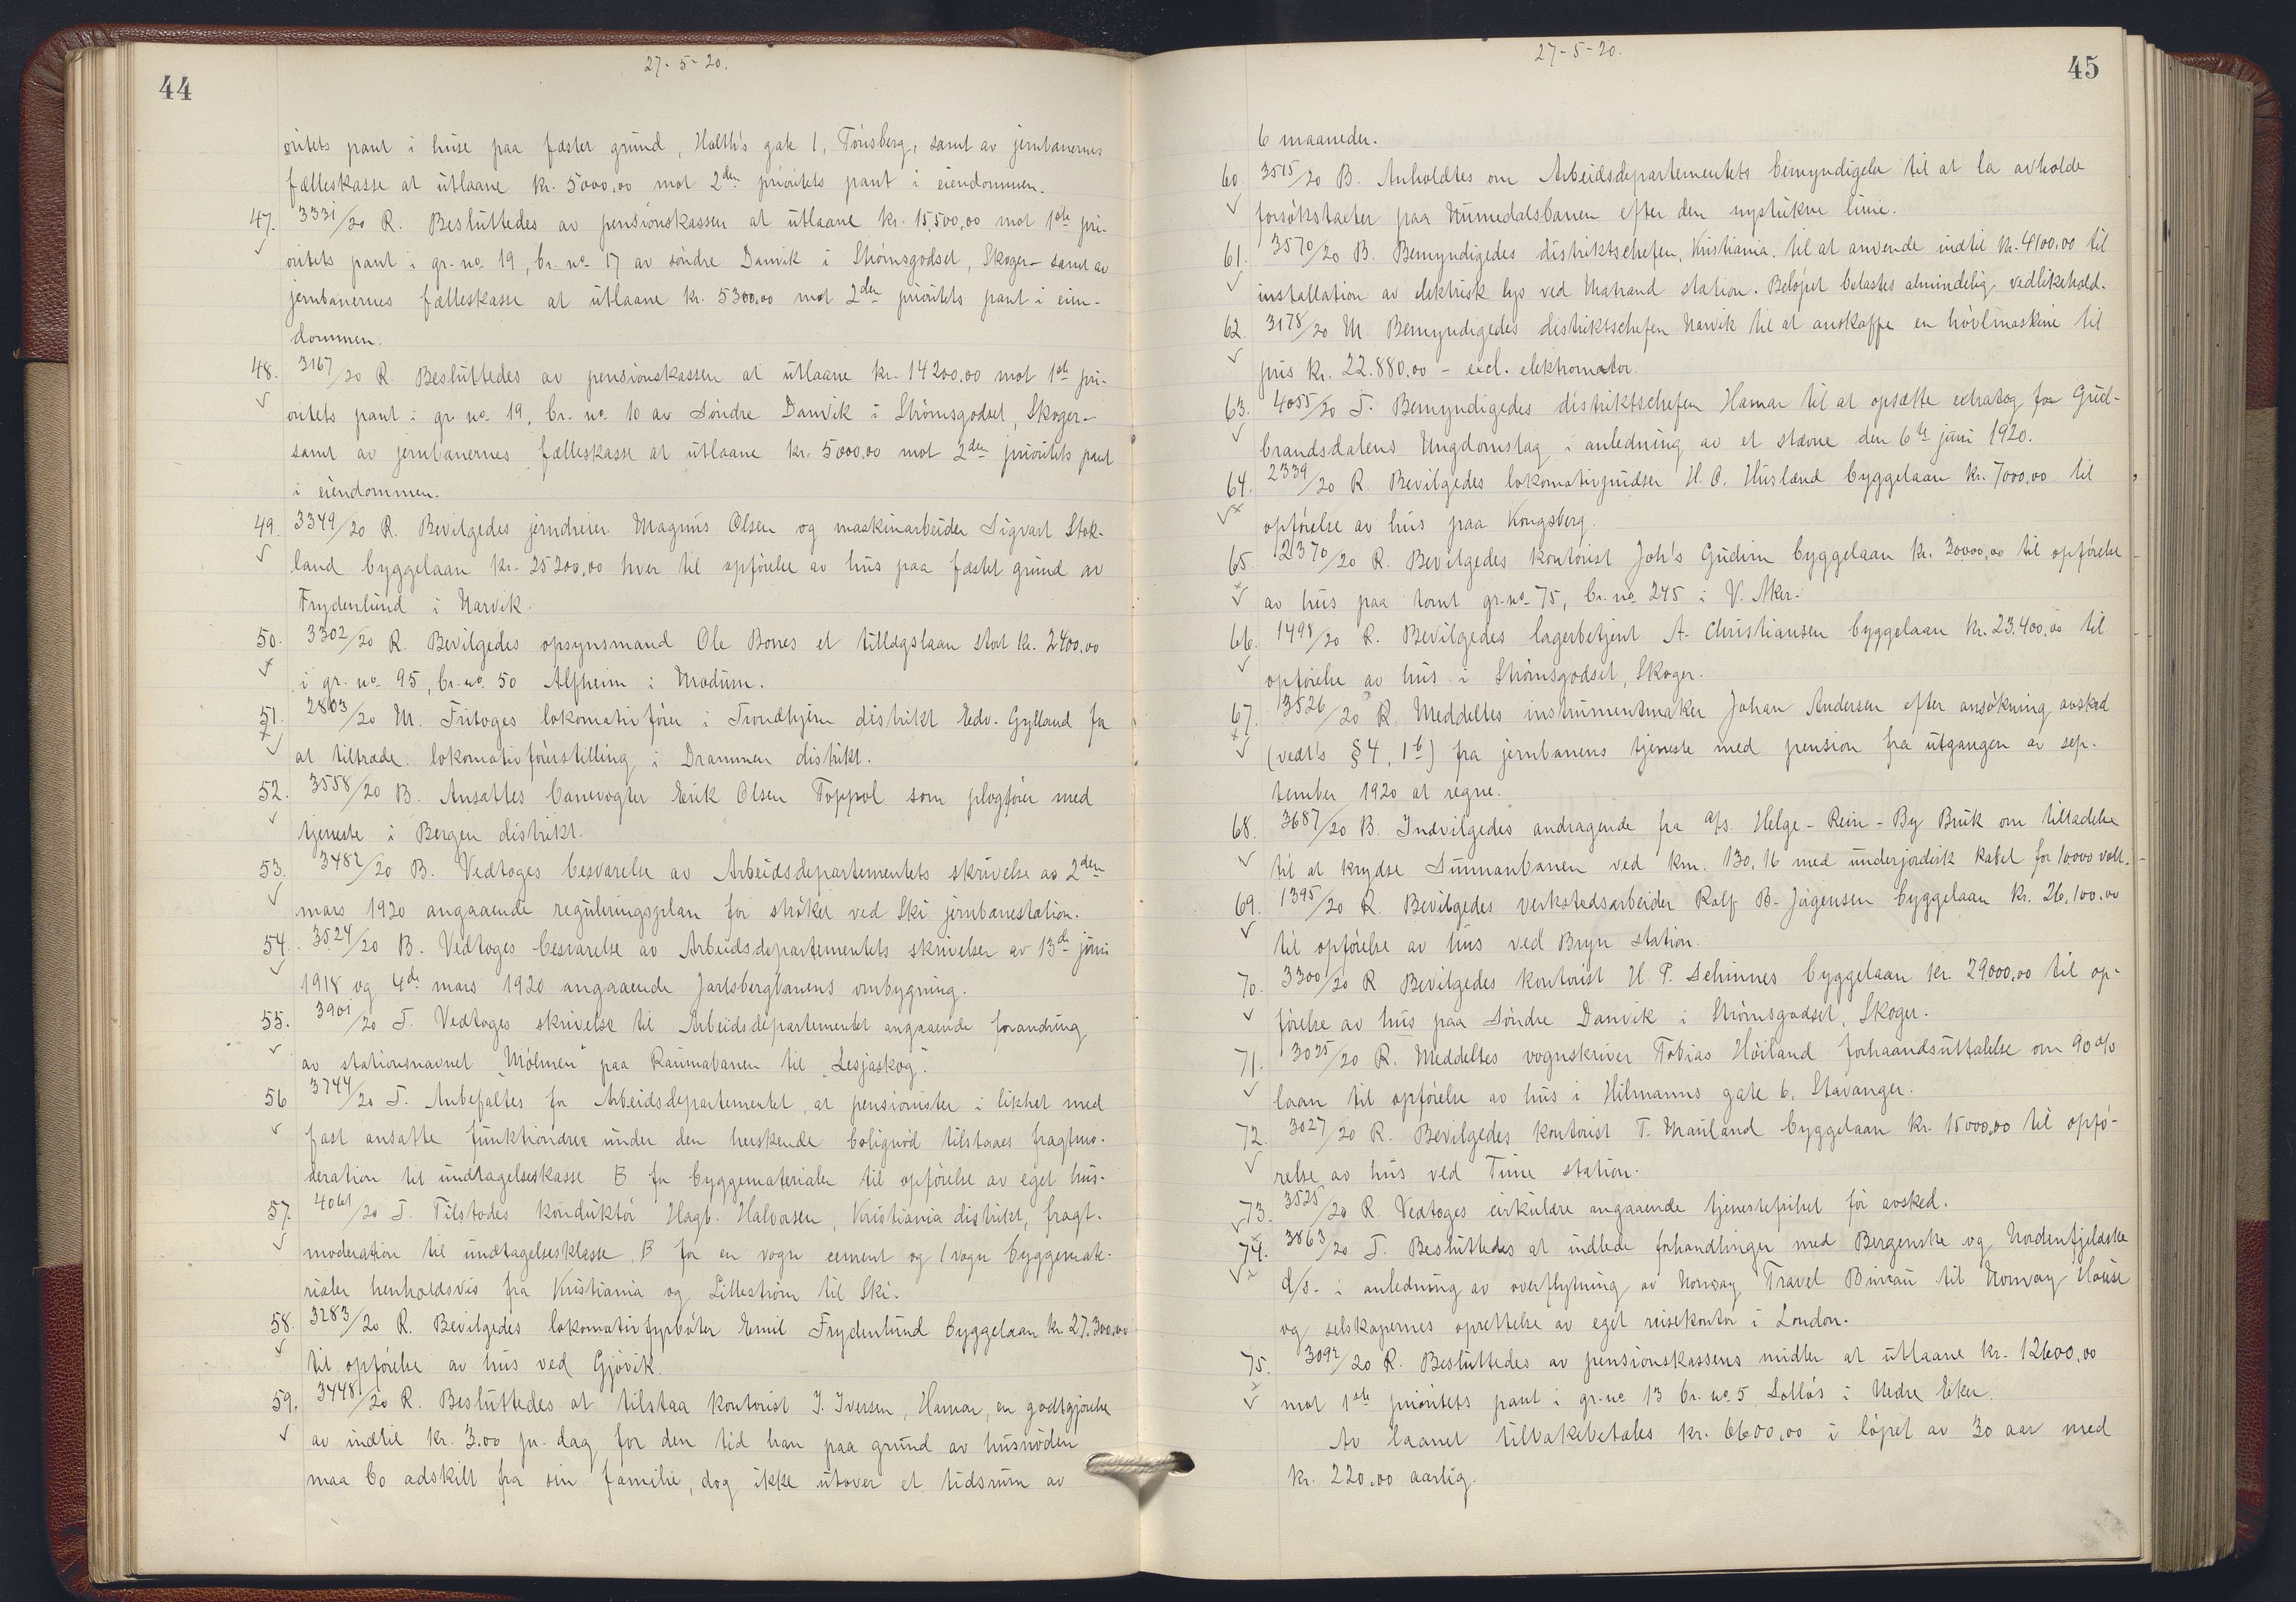 44
27-5-20.
oritets pant i huse paa fæstet grund, Holth's gate 1, Tönsberg, samt av jernbanernes
fælleskasse at utlaane kr. 5000,00 mot 2den prioritets pant i eiendommen.
47. 3331/20 R. Besluttedes av pensionskassen at utlaane kr. 15,500,00 mot 1ste pri-
oritets pant i gr. no. 19, br. no. 17 av söndre Danvik i Strömsgodset, Skoger - samt av
jernbanernes fælleskasse at utlaane kr. 5300,00 mot 2den prioritets pant i eien-
dommen.
48. 3167/20 R. Besluttedes av pensionskassen at utlaane kr. 14200,00 mot 1ste pri-
oritets pant i gr. no. 19, br. no. 10 av Söndre Danvik i Strömsgodset, Skoger -
samt av jernbanernes fælleskasse at utlaane kr. 5000,00 mot 2den prioritets pant
i eiendommen.
49. 3349/20 R. Bevilgedes jerndreier Magnus Olsen og maskinarbeider Sigvart Stok-
land byggelaan kr. 25200,00 hver til opförelse av hus paa fæstet grund av
Frydenlund i Narvik.
50. 3302/20 R. Bevilgedes opsynsmand Ole Bones et tillægslaan stort kr. 2400,00
i gr. no. 95, br. no. 50 Alfheim i Modum.
51. 2803/20 M. Fritoges lokomotivförer i Trondhjem distrikt Edv. Gylland for
at tiltræde lokomotivförerstilling i Drammen distrikt.
52. 3558/20 B. Ansattes banevogter Erik Olsen Toppol som plogförer med
tjeneste i Bergen distrikt.
53. 3482/20 B. Vedtoges besvarelse av Arbeidsdepartementets skrivelse av 2den
mars 1920 angaaende reguleringsplan for ströket ved Ski jernbanestation.
54. 3524/20 B. Vedtoges besvarelse av Arbeidsdepartementets skrivelser av 13de juni
1918 og 4de mars 1920 angaaende Jarlsbergbanens ombygning.
55. 3901/20 T. Vedtoges skrivelse til Arbeidsdepartementet angaaende forandring
av stationsnavnet "Mölmen" paa Raumabanen til "Lesjaskog".
56 3744/20 T. Anbefaltes for Arbeidsdepartementet, at pensionister i likhet med
fast ansatte funktionærer under den herskende bolignöd tilstaaes fragtmo-
deration til undtagelseskasse B for byggematerialer til opförelse av eget hus.
57. 4061/20 T. Tilstodes konduktör Hagb. Halvorsen, Kristiania distrikt, fragt-
moderation til undtagelsesklasse B for en vogn cement og 1 vogn byggemate-
rialer henholdsvis fra Kristiania og Lilleström til Ski.
58. 3283/20 R. Bevilgedes lokomotivfyrböter Emil Frydenlund byggelaan kr 27.300,00
til opförelse av hus ved Gjövik.
59. 3448/20 R. Besluttedes at tilstaa kontorist J. Iversen, Hamar, en godtgjörelse
av indtil kr. 3.00 pr. dag for den tid han paa grund av husnöden
maa bo adskilt fra sin familie, dog ikke utover et tidsrum av
45
27-5-20.
6 maaneder.
60 3515/20 B. Anholdtes om Arbeidsdepartementets bemyndigelse til at la avholde
forsökstakter paa Numedalsbanen efter den nystukne linie.
61. 3570/20 B. Bemyndigedes distriktschefen, Kristiania, til at anvende indtil kr. 4100.00 til
installation av elektrisk lys ved Matrand station. Belöpet belastes almindelig vedlikehold.
62. 3178/20 M. Bemyndigedes distriktschefen Narvik til at anskaffe en hövlmaskine til
pris kr. 22.880,00 - excl. elektromotor.
63. 4055/20 T. Bemyndigedes distriktschefen Hamar til at opsætte extratog for Gud-
brandsdalens Ungdomslag i anledning av et stævne den 6te juni 1920.
64. 2339/20 R. Bevilgedes lokomotivpudser H. O. Husland byggelaan kr. 7000,00 til
opförelse av hus paa Kongsberg.
65. 2370/20 R. Bevilgedes kontorist Joh's Gudim byggelaan kr. 30000,00 til opförelse
av hus paa tomt gr. no 75, br. no 245 i V. Aker.
66. 1498/20 R. Bevilgedes lagerbetjent A. Christiansen byggelaan kr. 23.400,00 til
opförelse av hus i Strömsgodset, Skoger.
67. 3526/20 R. Meddeltes instrumentmaker Johan Andersen efter ansökning avsked
(vedt's § 4, 1 b) fra jernbanens tjeneste med pension fra utgangen av sep-
tember 1920 at regne.
68. 3687/20 B. Indvilgedes andragende fra a/s. Helge-Rein-By Bruk om tilladelse
til at krydse Sunnanbanen ved km. 130,16 med underjordisk kabel for 10000 volt.
69. 1395/20 R. Bevilgedes verkstedsarbeider Rolf B. Jörgensen byggelaan kr. 26,100.00
til opförelse av hus ved Bryn station.
70. 3300/20 R. Bevilgedes kontorist H. P. Schinnes byggelaan kr. 29000,00 til op-
förelse av hus paa Söndre Danvik i Strömsgodset, Skoger.
71. 3025/20 R. Meddeltes vognskriver Tobias Höiland forhaandsuttalelse om 90 %
laan til opförelse av hus i Hilmanns gate 6, Stavanger.
72. 3027/20 R. Bevilgedes kontorist T. Mauland byggelaan kr. 15000,00 til opfö-
relse av hus ved Time station.
73. 3525/20 R. Vedtoges cirkulære angaaende tjenestefrihet för avsked.
74. 3863/20 T. Besluttedes at indlede forhandlinger med Bergenske og Nordenfjeldske
d/s. i anledning av overflytning av Norway Travel Bureau til Norway House
og selskapernes oprettelse av eget reisekontor i London.
75. 3092/20 R. Besluttedes av pensionskassens midler at utlaane kr. 12600,00
mot 1ste prioritets pant i gr. no 13 br. no 5 Sollös i Nedre Eiker.
Av laanet tilbakebetales kr. 6600,00 i löpet av 30 aar med
kr. 220,00 aarlig.